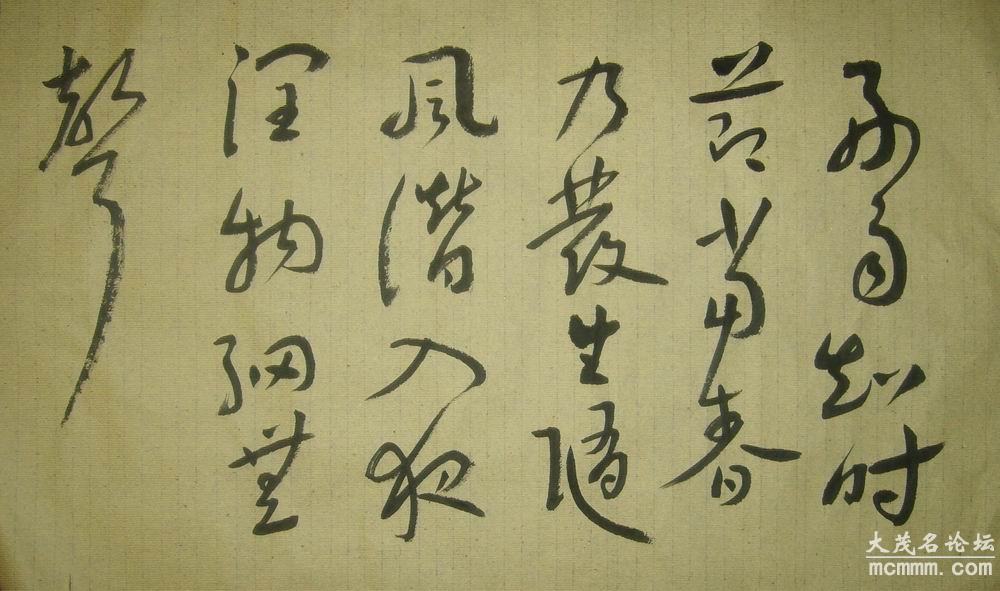 好雨知时
节当春
乃發生随
风潜入夜
润物细無
聲
大茂名论坛
mcmmm.com